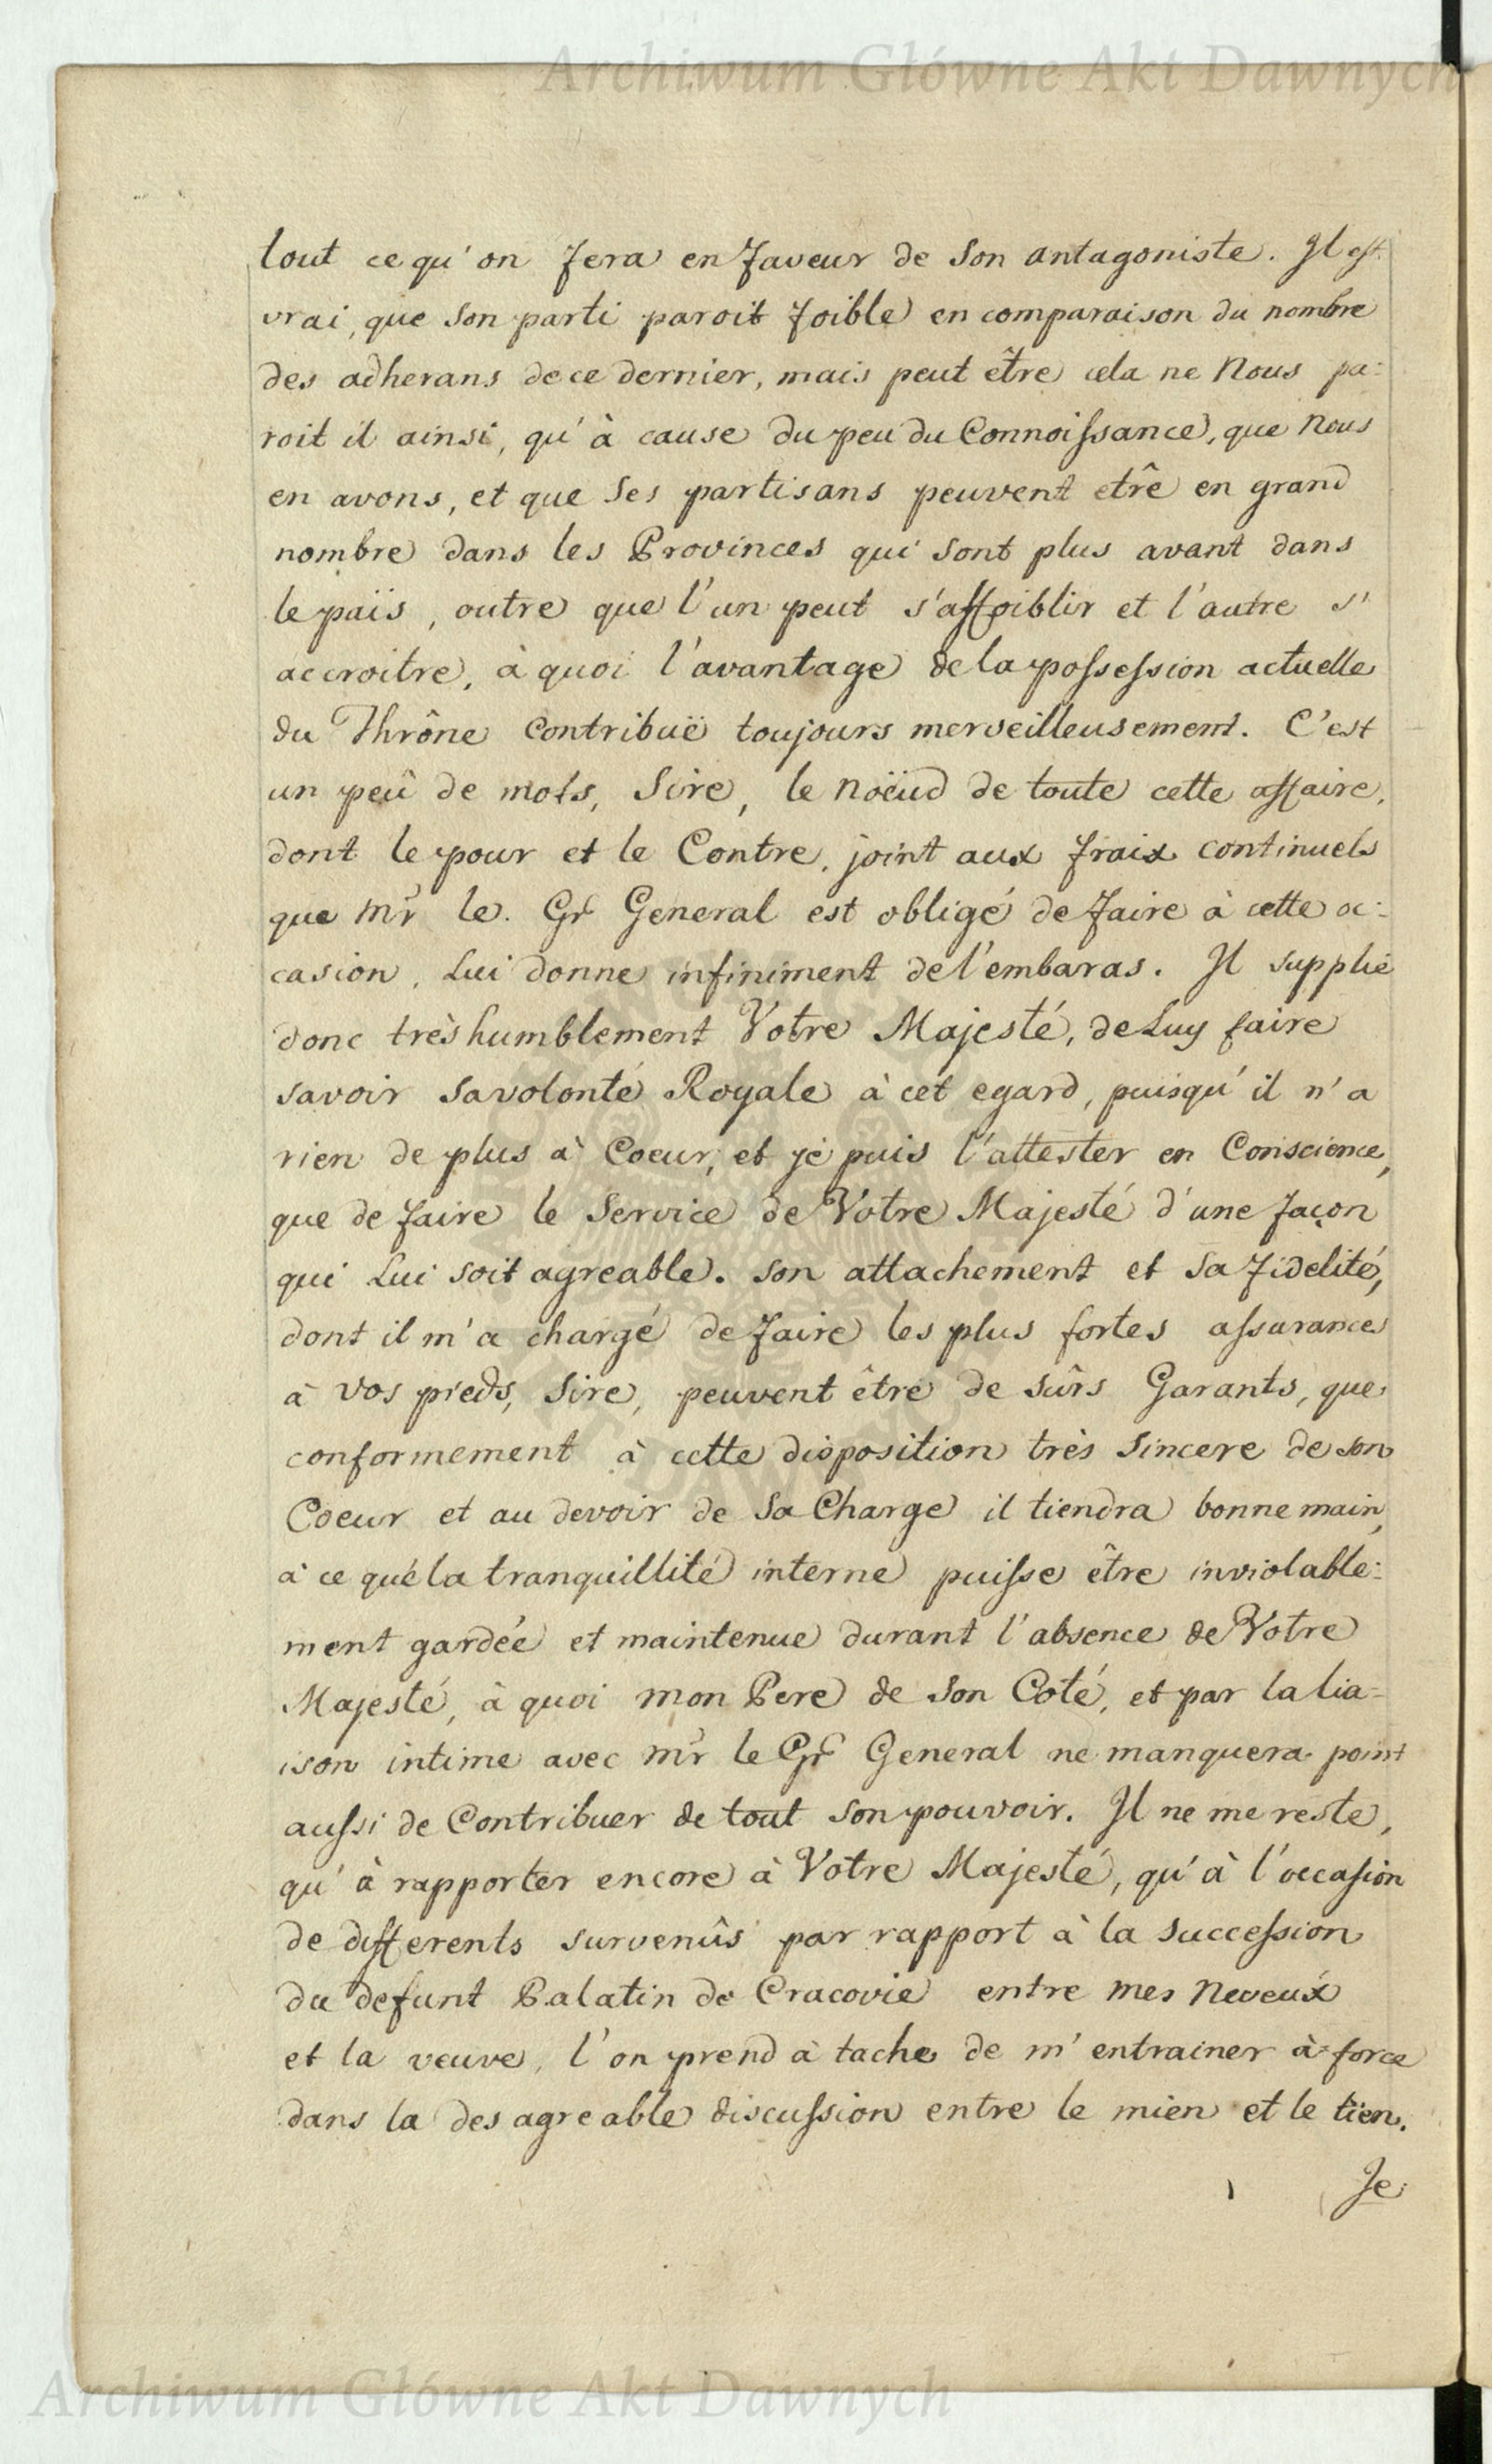 Archiwum Główne Akt Dawnych
tout ce qu'on fera en faveur de Son antagoniste. Il est
vrai, que Son parti paroit foible en comparaison du nombre
des adherans de ce dernier, mais peut être cela ne Nous pa:
roit il ainsi, qu'à cause du peu du Connoissance, que Nous
en avons, et que Ses partisans peuvent etrê en grand
nombre dans les Provinces qui Sont plus avant dans
le païs, outre que l'un peut s'affoiblir et l'autre s'
accroitre, à quoi l'avantage de la possession actuelle
du Thrône Contribuë toujours merveilleusement. C'est
un peû de mots, Sire, le Noëud de toute cette affaire,
dont le pour et le Contre, joint aux fraix continuels
que Mr le Gr General est obligé de faire à cette oc:
casion, Lui donne infiniment de l'embaras. Il supplie
donc très humblement Votre Majesté, de Luy faire
savoir Sa volonté Royale à cet egard, puisqu'il n'a
rien de plus à Coeur, et je puis l'attester en Conscience,
que de faire le Service de Votre Majesté d'une façon
qui Lui soit agreable. Son attachement et Sa fidelité,
dont il m'a chargé de faire les plus fortes assurances
à Vos pieds, Sire, peuvent être de sûrs Garants, que
conformement à cette disposition très Sincere de son
Coeur et au devoir de Sa Charge il tiendra bonne main,
à ce que la tranquillité interne puisse être inviolable:
ment gardée et maintenue durant l'absence de Votre
Majesté, à quoi mon Pere de Son Coté, et par la lia=
ison intime avec Mr le Gr General ne manquera point
aussi de Contribuer de tout Son pouvoir. Il ne me reste,
qu'à rapporter encore à Votre Majesté, qu'à l'occasion
de differents survenûs par rapport à la Succession
du defunt Palatin de Cracovie entre mes Neveux
et la veuve, l'on prend à tache de m'entrainer à force
dans la des agreable discussion entre le mien et le tien.
Je
Archiwum Główne Akt Dawnych